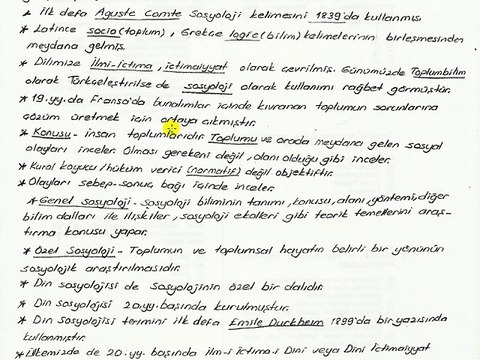 * İlk defa Aguste Comte Sosyoloji kelimesini 1839'da kullanmış.
* Latince socio(toplum), Grekçe logie(bilim) kelimelerinin birleşmesinden
meydana gelmiş.
* Dilimize İlmi-ictima, ictimaiyyat olarak çevrilmiş. Günümüzde Toplumbilim
olarak Türkçeleştirilse de sosyoloji olarak kullanımı rağbet görmüştür.
* 19.yy.da Fransa'da bunalımlar içinde kıvranan toplumun sorunlarına
çözüm üretmek için ortaya çıkmıştır.
* Konusu - insan toplumlarıdır. Toplumu ve orada meydana gelen sosyal
olayları inceler. Olması gerekeni değil, olanı olduğu gibi inceler.
* Kural koyucu/hüküm verici (normatif) değil objektiftir.
* Olayları sebep-sonuç bağı içinde inceler.
* Genel Sosyoloji - Sosyoloji biliminin tanımı, konusu, alanı, yöntemi, diğer
bilim dalları ile ilişkiler, sosyoloji ekolleri gibi teorik temellerini araş-
tırma konusu yapar.
* Özel Sosyoloji - Toplumun ve toplumsal hayatın belirli bir yönünün
sosyolojik araştırılmasıdır.
* Din sosyolojisi de Sosyolojinin özel bir dalıdır.
* Din Sosyolojisi 20.yy. başında kurulmuştur.
* Din Sosyolojisi terimini ilk defa Emile Durkheim 1899'da bir yazısında
kullanmıştır.
* Ülkemizde de 20.yy. başında ilm-i ictima-i Dini veya Dini İctimaiyyat